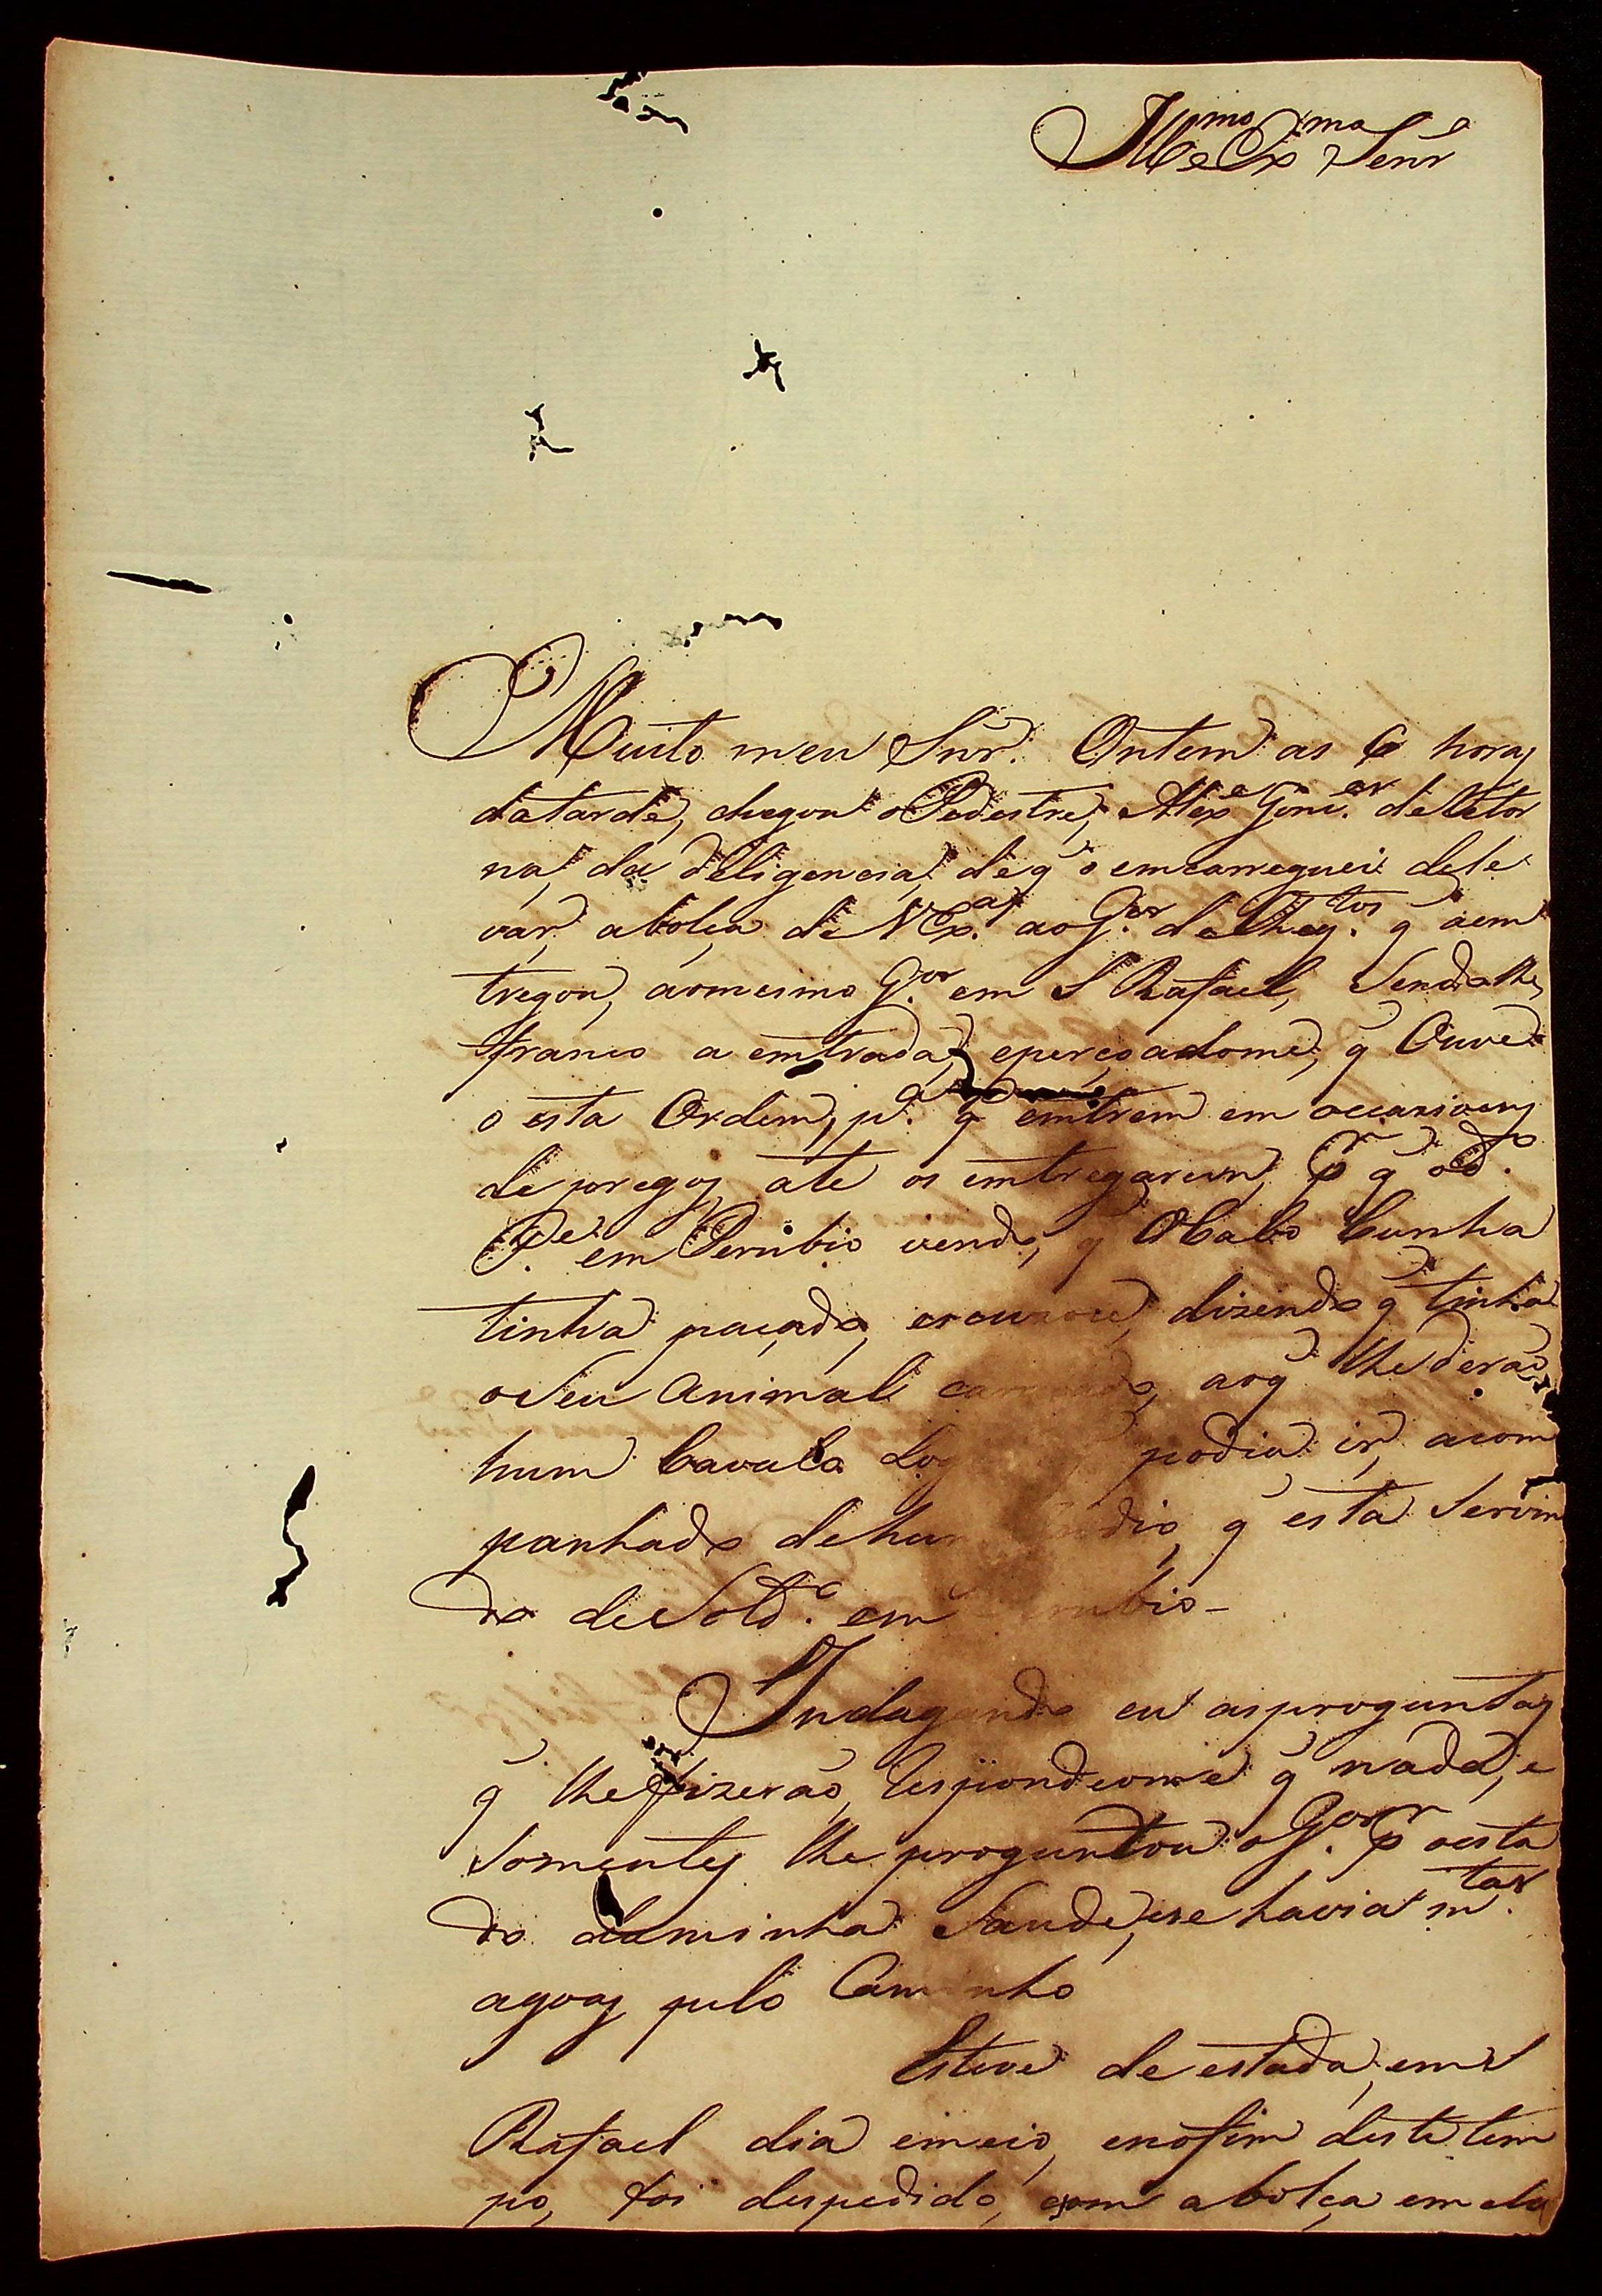 Ill.mo e Ex.mo Senr
Muito meu Snr. Ontem as 6 horas
datarde, chegou o Pedestre, Alexe Gonc.es deletor
na, da deligencia, de q̃ o emcarreguei dele
var, abolça de V Ex.as ao G.or de Cheq.tos q̃ aem
tregou, aomesmo G.or em S Rafael, Sendolhe
franco a emtrada, eperçoadome, q̃ Ouve
o esta Ordem, p.a q̃ emtrem em occazioens
de pregos, ate os emtregarem, pr q̃ o d.o
P.e em Perubio vendo, q̃ O Cabo Cunha
tinha paçado, dizendo q̃ tinha
oseu animal aoq̃ lhe derão
hum Cavalo podia ir, acom
panhado dehum q̃ esta Servin
do de Sold.o em
Indagando eu asproguntas
q̃ lhe fizerão, Respondeome q̃ nada, e
Somentes lhe proguntou o G.or pr oesta
do daminha Saude, ese havia m.tas
agoas pelo Caminho
Esteve de estada, em S
Rafael dia emeio, enofim deste tem
po, foi despedido, com a bolça em ela